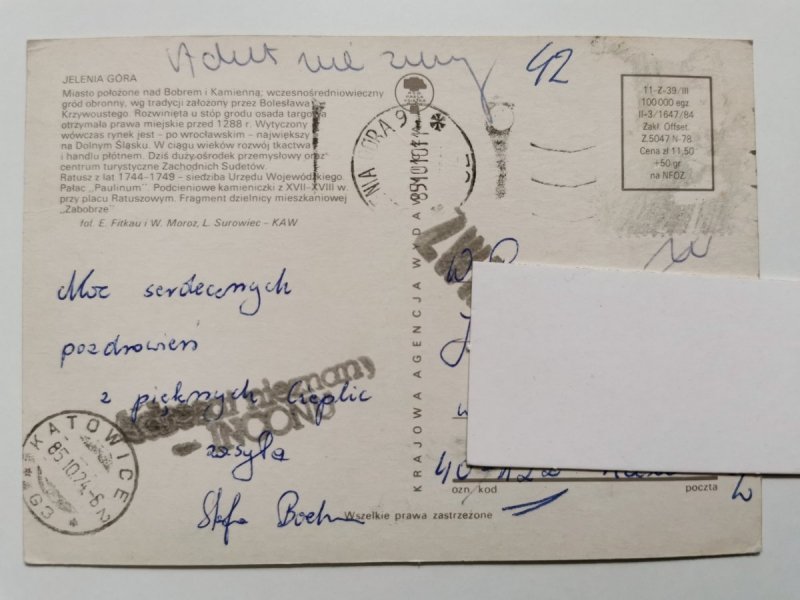 42
JELENIA GÓRA
Miasto położone nad Bobrem i Kamienną; wczesnośredniowieczny
gród obronny, wg tradycji założony przez Bolesława
Krzywoustego. Rozwinięta u stóp grodu osada targowa
otrzymała prawa miejskie przed 1288 r. Wytyczony
wówczas rynek jest – po wrocławskim – największy
na Dolnym Śląsku. W ciągu wieków rozwój tkactwa
i handlu płótnem. Dziś duży ośrodek przemysłowy oraz
centrum turystyczne Zachodnich Sudetów.
Ratusz z lat 1744–1749 – siedziba Urzędu Wojewódzkiego.
Pałac „Paulinum". Podcieniowe kamieniczki z XVII–XVIII w.
przy placu Ratuszowym. Fragment dzielnicy mieszkaniowej
„Zabobrze"
fot. E. Fitkau i W. Moroz, L. Surowiec – KAW
11-Z-39/III
100 000 egz
II-3/1647/84
Zakł. Offset.
Z.5047 N-78
Cena zł 11,50
+50 gr
na NFOZ
Moc serdecznych
pozdrowień
z pięknych Cieplic
zasyła
Stefa
nieznany
INCONNU
KATOWICE 2
85.10.24.-6
KRAJOWA AGENCJA WYDA
ozn. kod
poczta
Wszelkie prawa zastrzeżone